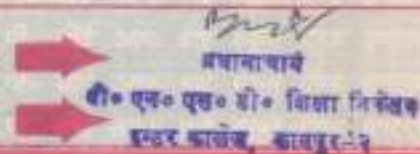 प्रधानाचार्य
बी० एन० एस० डी० शिक्षा निकेतन
इन्टर कालेज, कानपुर-२